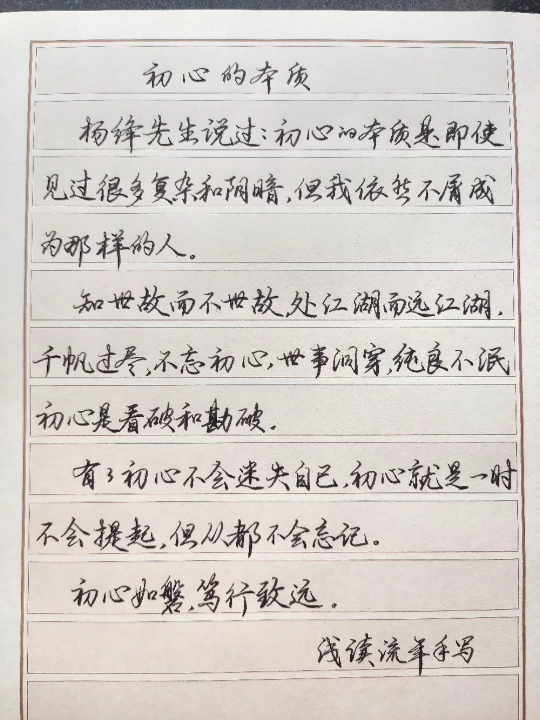 初心的本质
杨绛先生说过:初心的本质是即使
见过很多复杂和阴暗,但我依然不屑成
为那样的人。
知世故而不世故,处江湖而远江湖,
千帆过尽,不忘初心,世事洞穿,纯良不泯
初心是看破和勘破。
有了初心不会迷失自己,初心就是一时
不会提起,但从都不会忘记。
初心如磐,笃行致远。
浅读流年手写